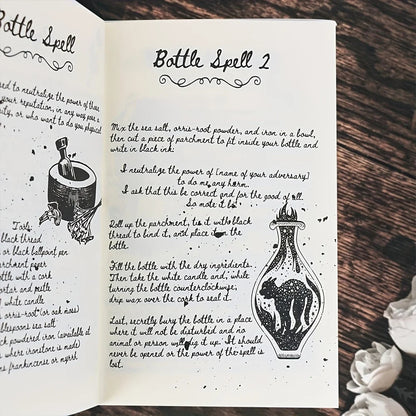 Bottle Spell
ed to neutralize the power of those
your reputation, in any way pose a
urity, or who want to do you physical
Tools:
black thread
k or black ballpoint pen
archment paper
ottle with a cork
ortar and pestle
white candle
s orris-root (or oak moss)
blespoons sea salt
k powdered iron (available at
where ironstone is made)
ns frankincense or myrrh
Bottle Spell 2
Mix the sea salt, orris-root powder, and iron in a bowl,
then cut a piece of parchment to fit inside your bottle and
write in black ink:
I neutralize the power of [name of your adversary]
to do me any harm.
I ask that this be correct and for the good of all.
So mote it be.
Roll up the parchment, tie it with black
thread to bind it, and place it in the
bottle.
Fill the bottle with the dry ingredients.
Then, take the white candle and, while
turning the bottle counterclockwise,
drip wax over the cork to seal it.
Last, secretly bury the bottle in a place
where it will not be disturbed and no
animal or person will dig it up. It should
never be opened or the power of the spell is
lost.